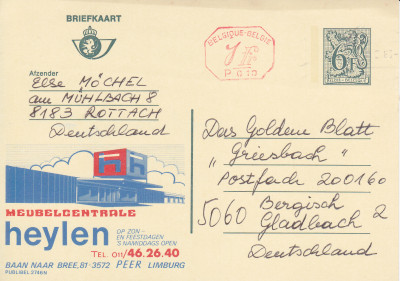 BRIEFKAART
BELGIQUE-BELGIE
1 F
6F
Afzender
Else MÖCHEL
am MÜHLBACH 8
8183 ROTTACH
Deutschland
Das Goldene Blatt
„Griesbach"
Postfach 200160
5060 Bergisch
Gladbach 2
Deutschland
MEUBELCENTRALE
heylen
OP ZON-
EN FEESTDAGEN
'S NAMIDDAGS OPEN
TEL. 011/46.26.40
BAAN NAAR BREE, 81-3572 PEER LIMBURG
PUBLIBEL 2746N